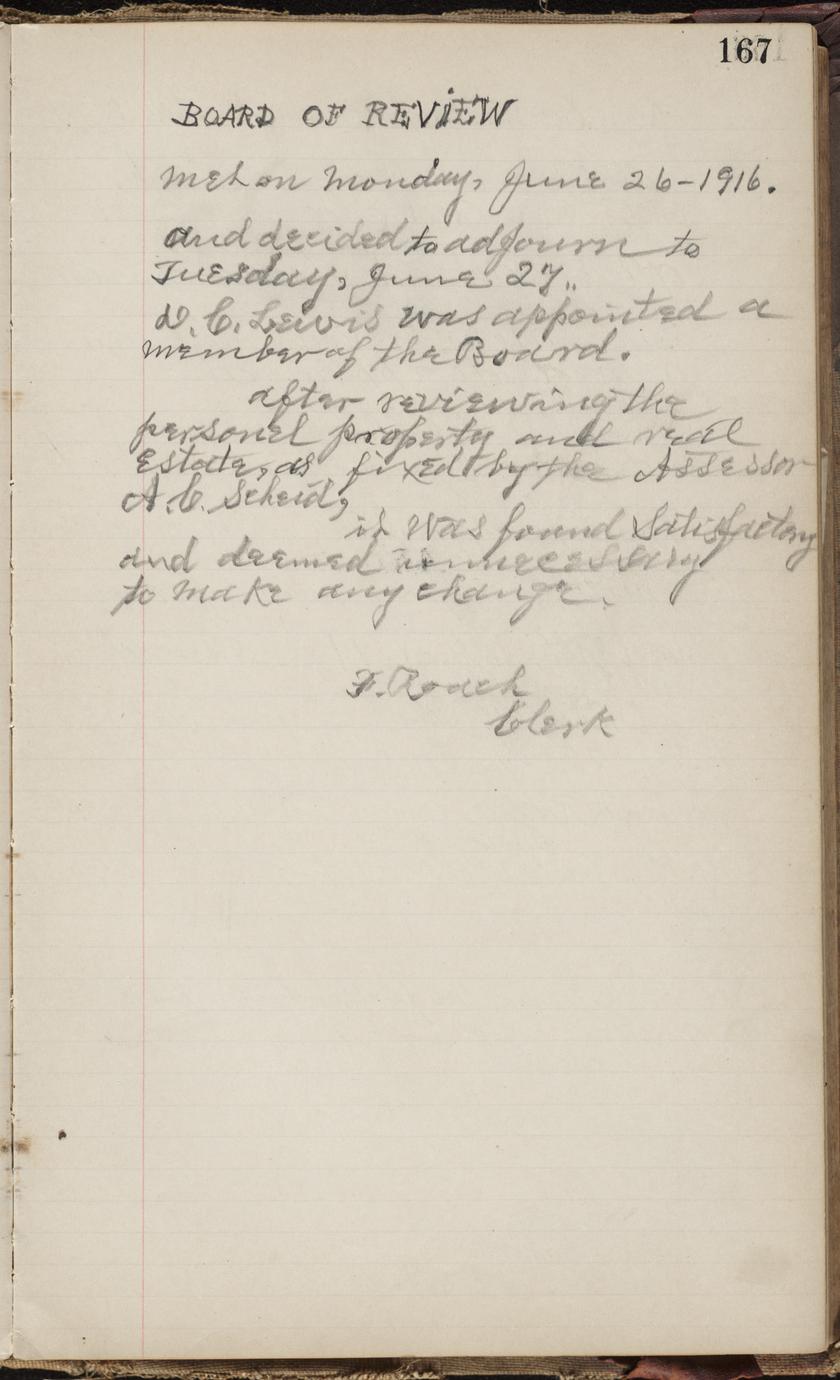 167
BOARD OF REVIEW
Met on Monday, June 26-1916.
and decided to adjourn to
Tuesday, June 27..
D. C. Lewis was appointed a
member of the Board.
after reviewing the
personel property and real
Estate, as fixed by the Assessor
A. C. Scheid,
it was found Satisfactory
and deemed unnecessary
to make any change.
F. Roach
Clerk